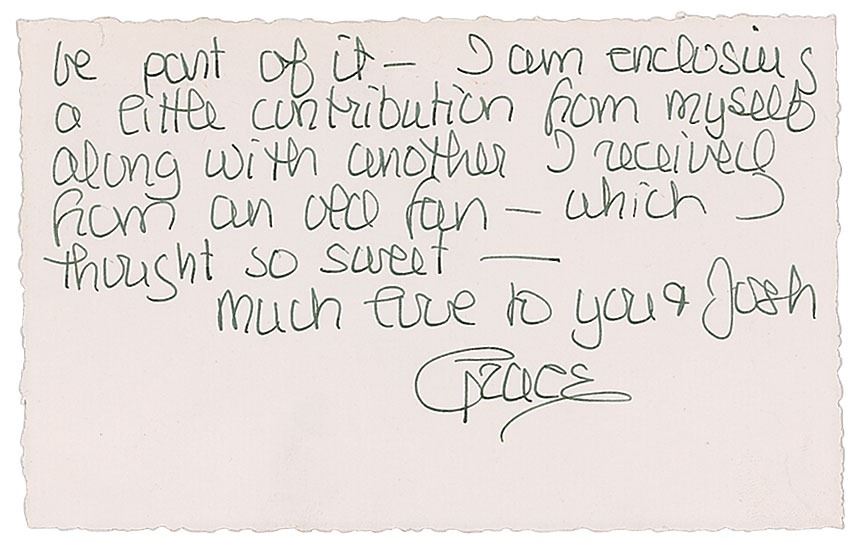 be part of it — I am enclosing
a little contribution from myself
along with another I received
from an old fan — which I
thought so sweet —
much love to you & Josh
Grace